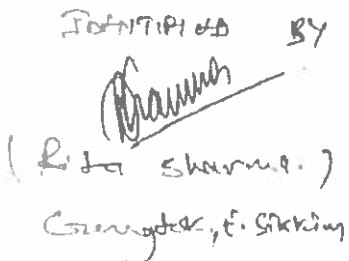 IDENTIFIED BY
Sharma
(Rita Sharma.)
Gangtok, E. Sikkim